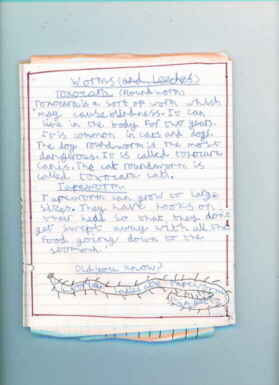 Worms (and Leeches)
Toxocara (Roundworm)
Toxocara is a sort of worm which
may cause blindness. It can
live in the body for our years.
It is common in cats and dogs.
The dog roundworm is the most
dangerous. It is called toxocara
canis. The cat roundworm is
called toxocara cati.
Tapeworm
Tapeworm can grow to large
sizes. They have hooks on
their head so that they don't
get swept away with all the
food going down to the
stomach.
Did you know?